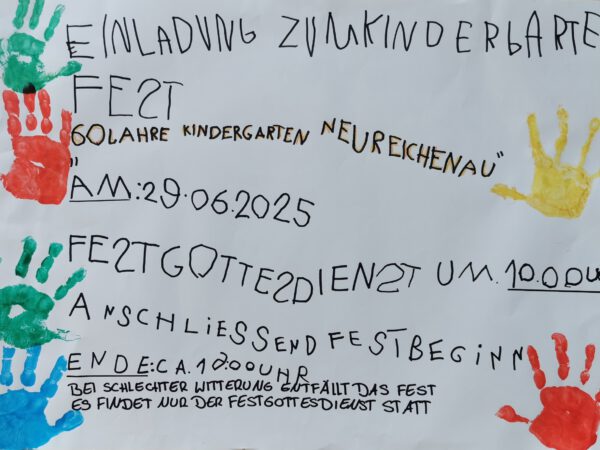 EINLADUNG ZUM KINDERGARTE
FEST
60 JAHRE KINDERGARTEN NEUREICHENAU"
"
AM: 29.06.2025
FESTGOTTESDIENST UM. 10.00 U
ANSCHLIESSEND FESTBEGINN
ENDE: CA. 17.00 UHR
BEI SCHLECHTER WITTERUNG ENTFÄLLT DAS FEST
ES FINDET NUR DER FESTGOTTESDIENST STATT